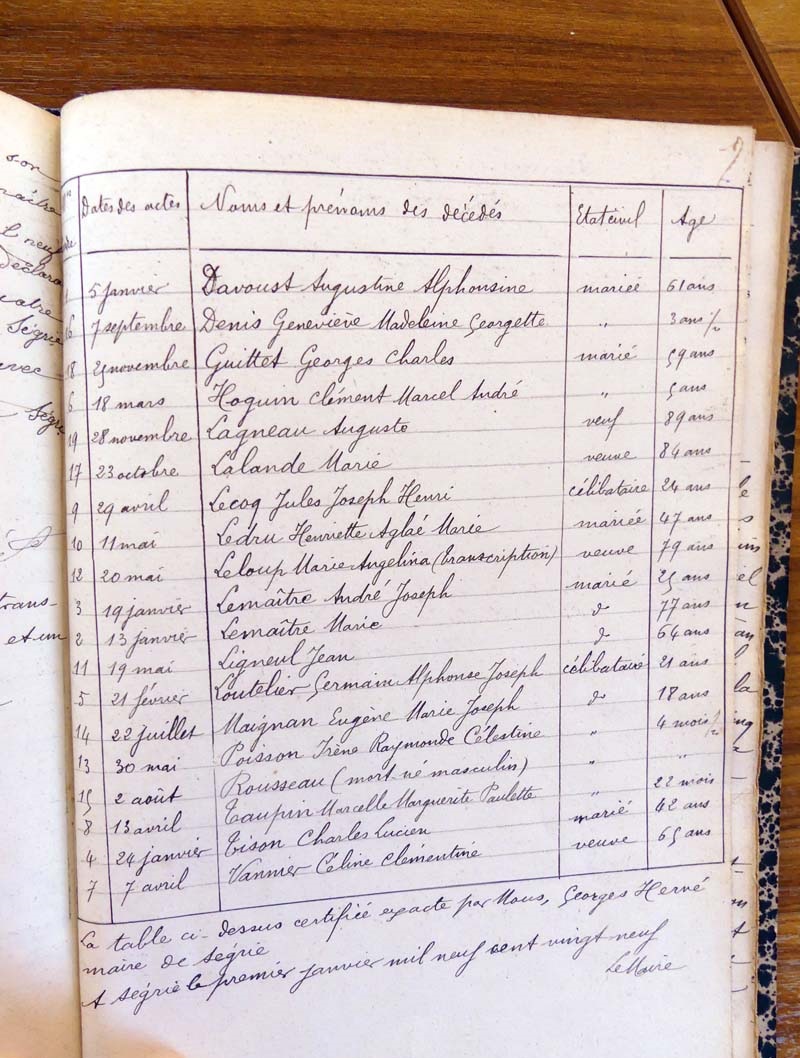 son
naître
L neuf
déclara
notre
Ségrie
avec
Ségrie
trans-
et un
7
Dates des actes Noms et prénoms des décédés Etat civil Age
1 5 janvier Davoust Augustine Alphonsine mariée 61 ans
16 7 septembre Denis Geneviève Madeleine Georgette " 3 ans ½
18 25 novembre Guittet Georges Charles marié 59 ans
6 18 mars Hoguin Clément Marcel André " 5 ans
19 28 novembre Lagneau Auguste veuf 89 ans
17 23 octobre Lalande Marie veuve 84 ans
9 29 avril Lecoq Jules Joseph Henri célibataire 24 ans
10 11 mai Ledru Henriette Aglaé Marie mariée 47 ans
12 20 mai Leloup Marie Angelina (transcription) veuve 79 ans
3 19 janvier Lemaître André Joseph marié 25 ans
2 13 janvier Lemaître Marie d° 77 ans
11 19 mai Ligneul Jean d° 64 ans
5 21 février Loutelier Germain Alphonse Joseph célibataire 21 ans
14 22 juillet Maignan Eugène Marie Joseph d° 18 ans
13 30 mai Poisson Irène Raymonde Célestine " 4 mois ½
15 2 août Rousseau (mort-né masculin) " "
8 13 avril Taupin Marcelle Marguerite Paulette " 22 mois
4 24 janvier Tison Charles Lucien marié 42 ans
7 7 avril Vannier Céline Clémentine veuve 65 ans
La table ci-dessus certifiée exacte par Nous, Georges Hervé
maire de Ségrie
A Ségrie le premier janvier mil neuf cent vingt neuf
Le Maire